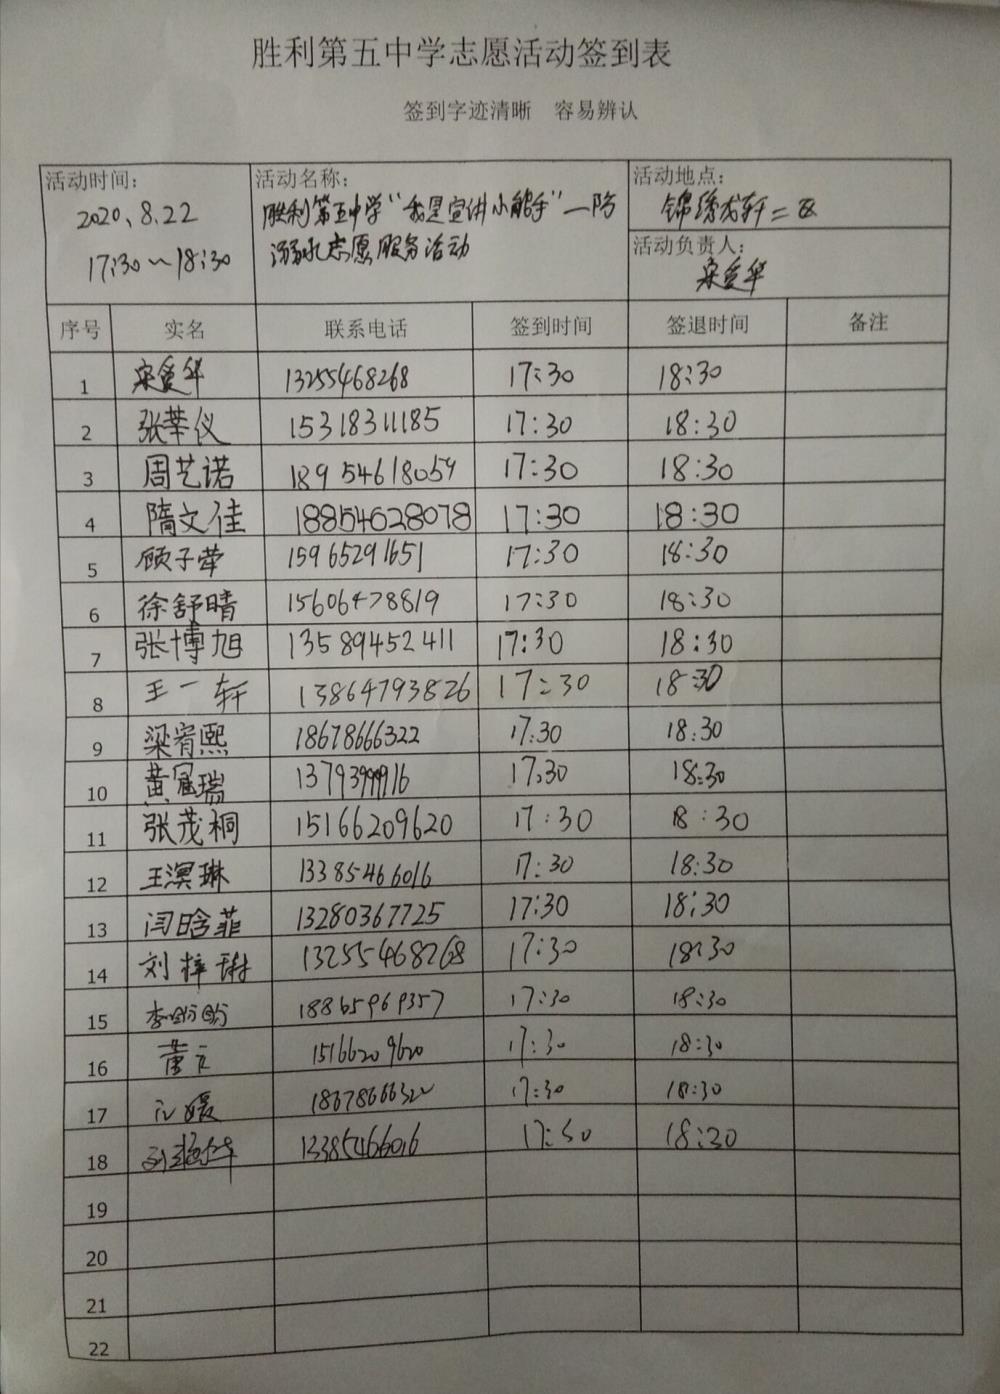 胜利第五中学志愿活动签到表
签到字迹清晰 容易辨认
活动时间:
2020.8.22
17:30~18:30
活动名称:
胜利第五中学“我是宣讲小能手”—防
溺水志愿服务活动
活动地点:
锦绣龙轩二区
活动负责人:
宋爱华
序号 实名 联系电话 签到时间 签退时间 备注
1 宋爱华 13255468268 17:30 18:30
2 张莘仪 15318311185 17:30 18:30
3 周艺诺 18954618059 17:30 18:30
4 隋文佳 18854628078 17:30 18:30
5 顾子荦 15965291651 17:30 18:30
6 徐舒晴 15606478819 17:30 18:30
7 张博旭 13589452411 17:30 18:30
8 王一轩 13864793826 17:30 18:30
9 梁宥熙 18678666322 17:30 18:30
10 黄冠瑞 13793999916 17:30 18:30
11 张茂桐 15166209620 17:30 18:30
12 王淏琳 13385466016 17:30 18:30
13 闫晗菲 13280367725 17:30 18:30
14 刘梓谢 13255468268 17:30 18:30
15 李盼盼 18865969357 17:30 18:30
16 董 15166209620 17:30 18:30
17 媛 18678666322 17:30 18:30
18 刘 13385466016 17:30 18:30
19
20
21
22